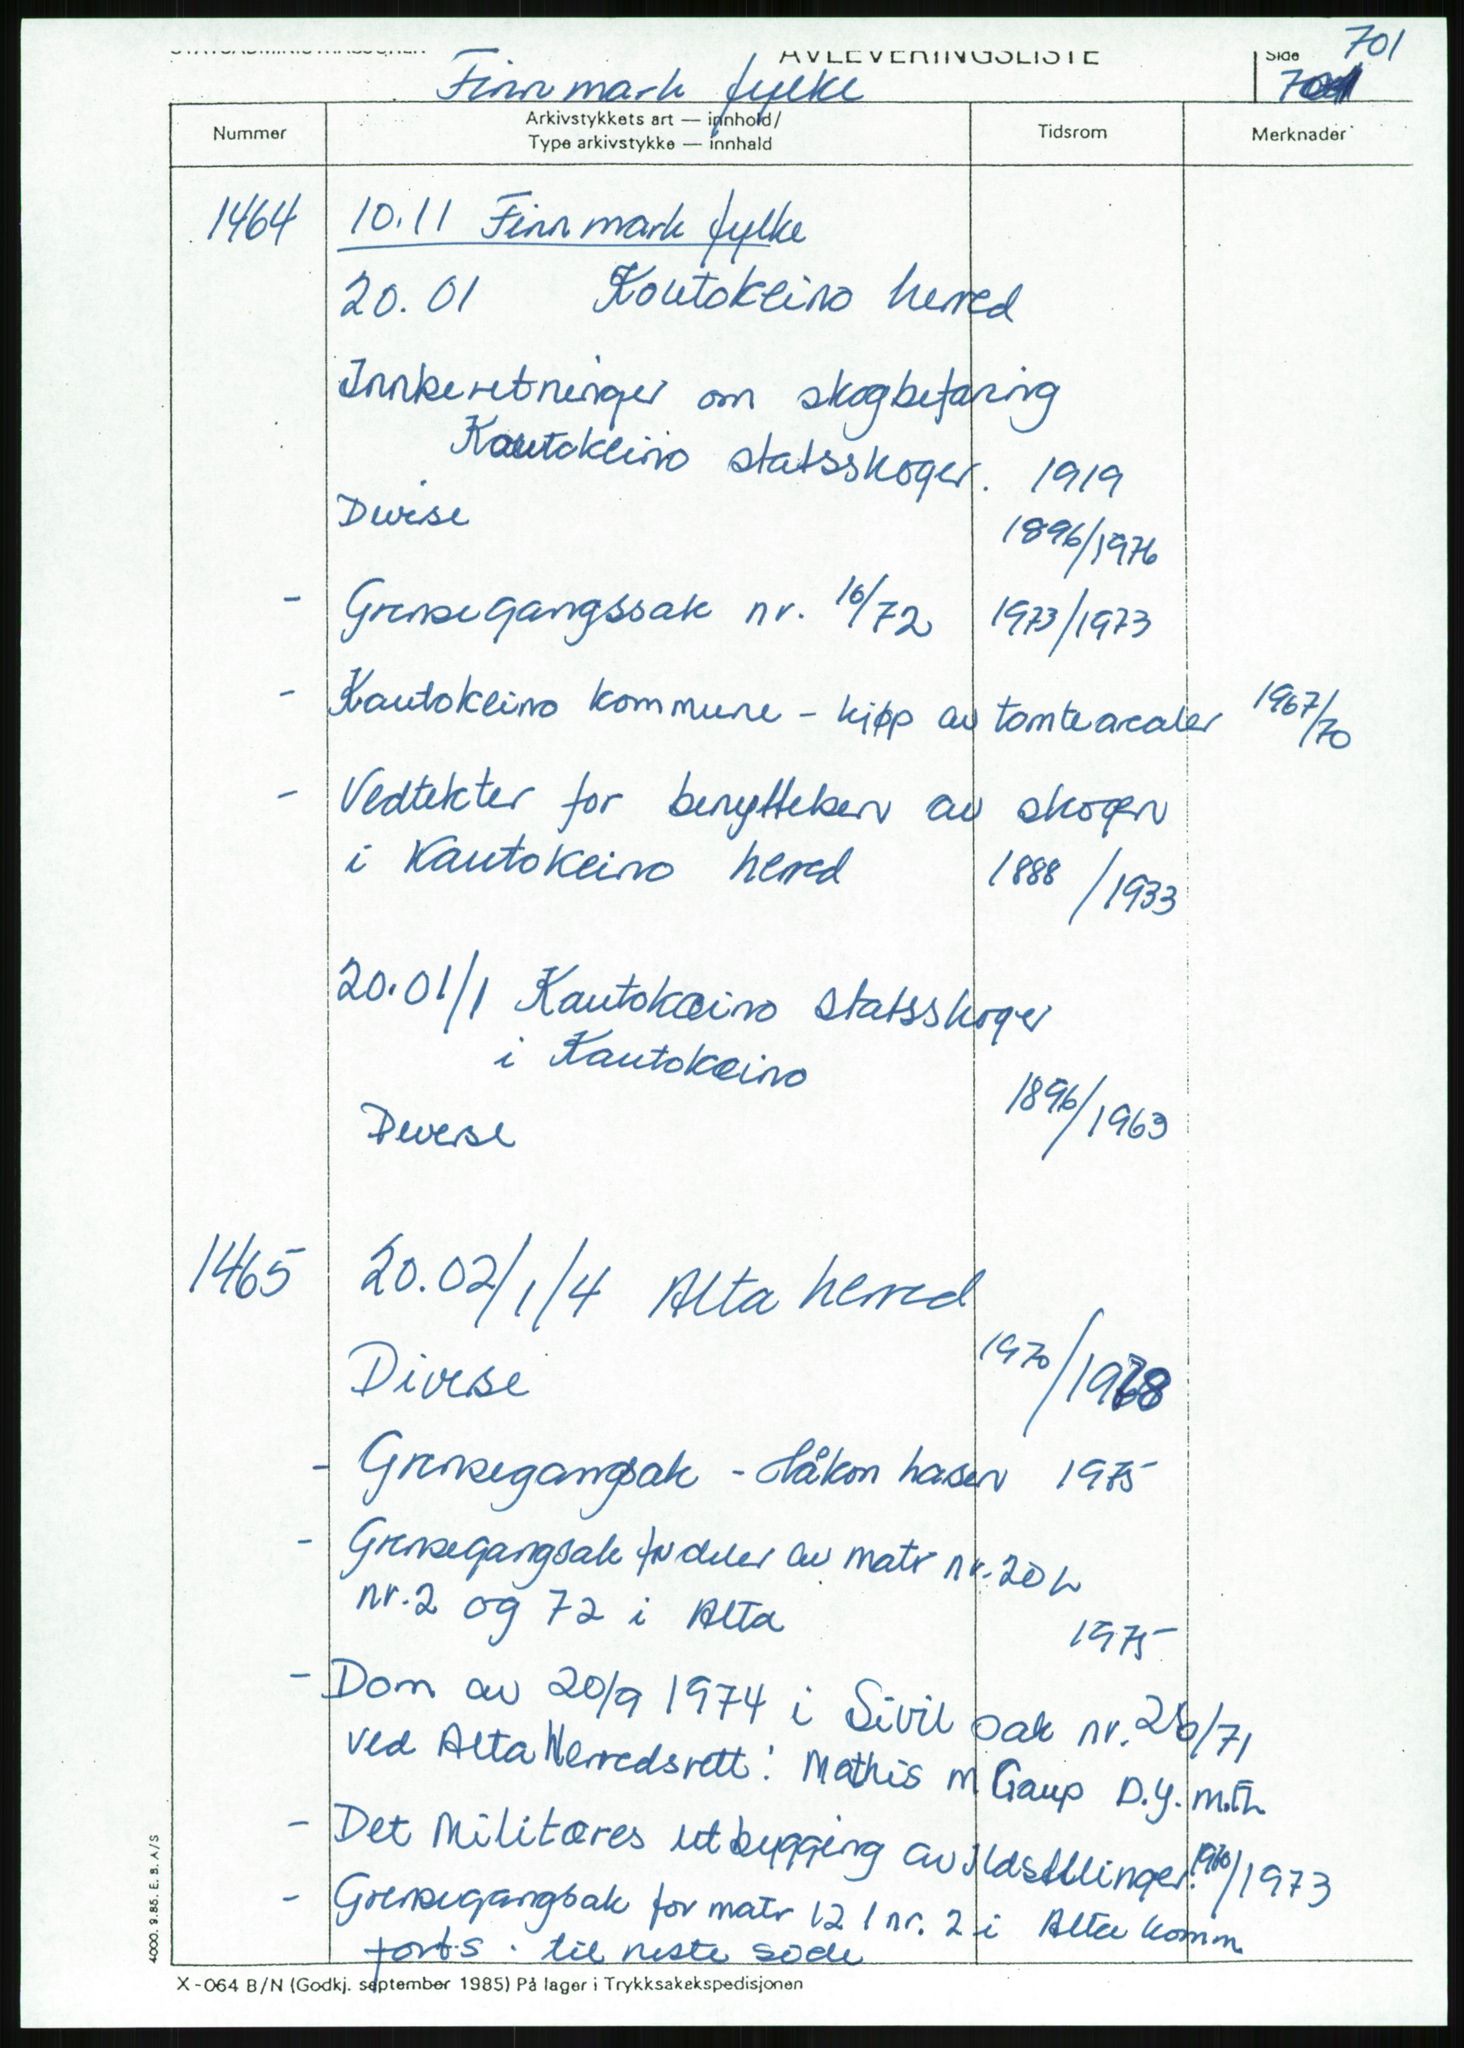 AVLEVERINGSLISTE
Side 701
Finnmark fylke
Nummer
Arkivstykkets art — innhold/
Type arkivstykke — innhald
Tidsrom
Merknader
1464 10.11 Finnmark fylke
20.01 Kautokeino herred
Innberetninger om skogbefaring
Kautokeino statsskoger. 1919
Diverse 1896/1976
- Grensegangssak nr. 16/72 1973/1973
- Kautokeino kommune - kjøp av tomtearealer 1967/70
- Vedtekter for benyttelsen av skogen
i Kautokeino herred 1888/1933
20.01/1 Kautokeino statsskoger
i Kautokeino
Diverse 1896/1963
1465 20.02/1/4 Alta herred
Diverse 1970/1978
- Grensegangsak - Håkon hasen 1975
- Grensegangsak for deler av matr nr. 20
nr. 2 og 72 i Alta 1975
- Dom av 20/9 1974 i Sivil sak nr. 26/71
ved Alta Herredsrett: Mathis M Gaup D.Y. m.fl.
- Det Militæres utbygging av Ildstillinger. 1960/1973
- Grensegangsak for matr 12 l nr. 2 i Alta komm
forts. til neste side
4000. 9.85. E. B. A/S
X-064 B/N (Godkj. september 1985) På lager i Trykksakekspedisjonen